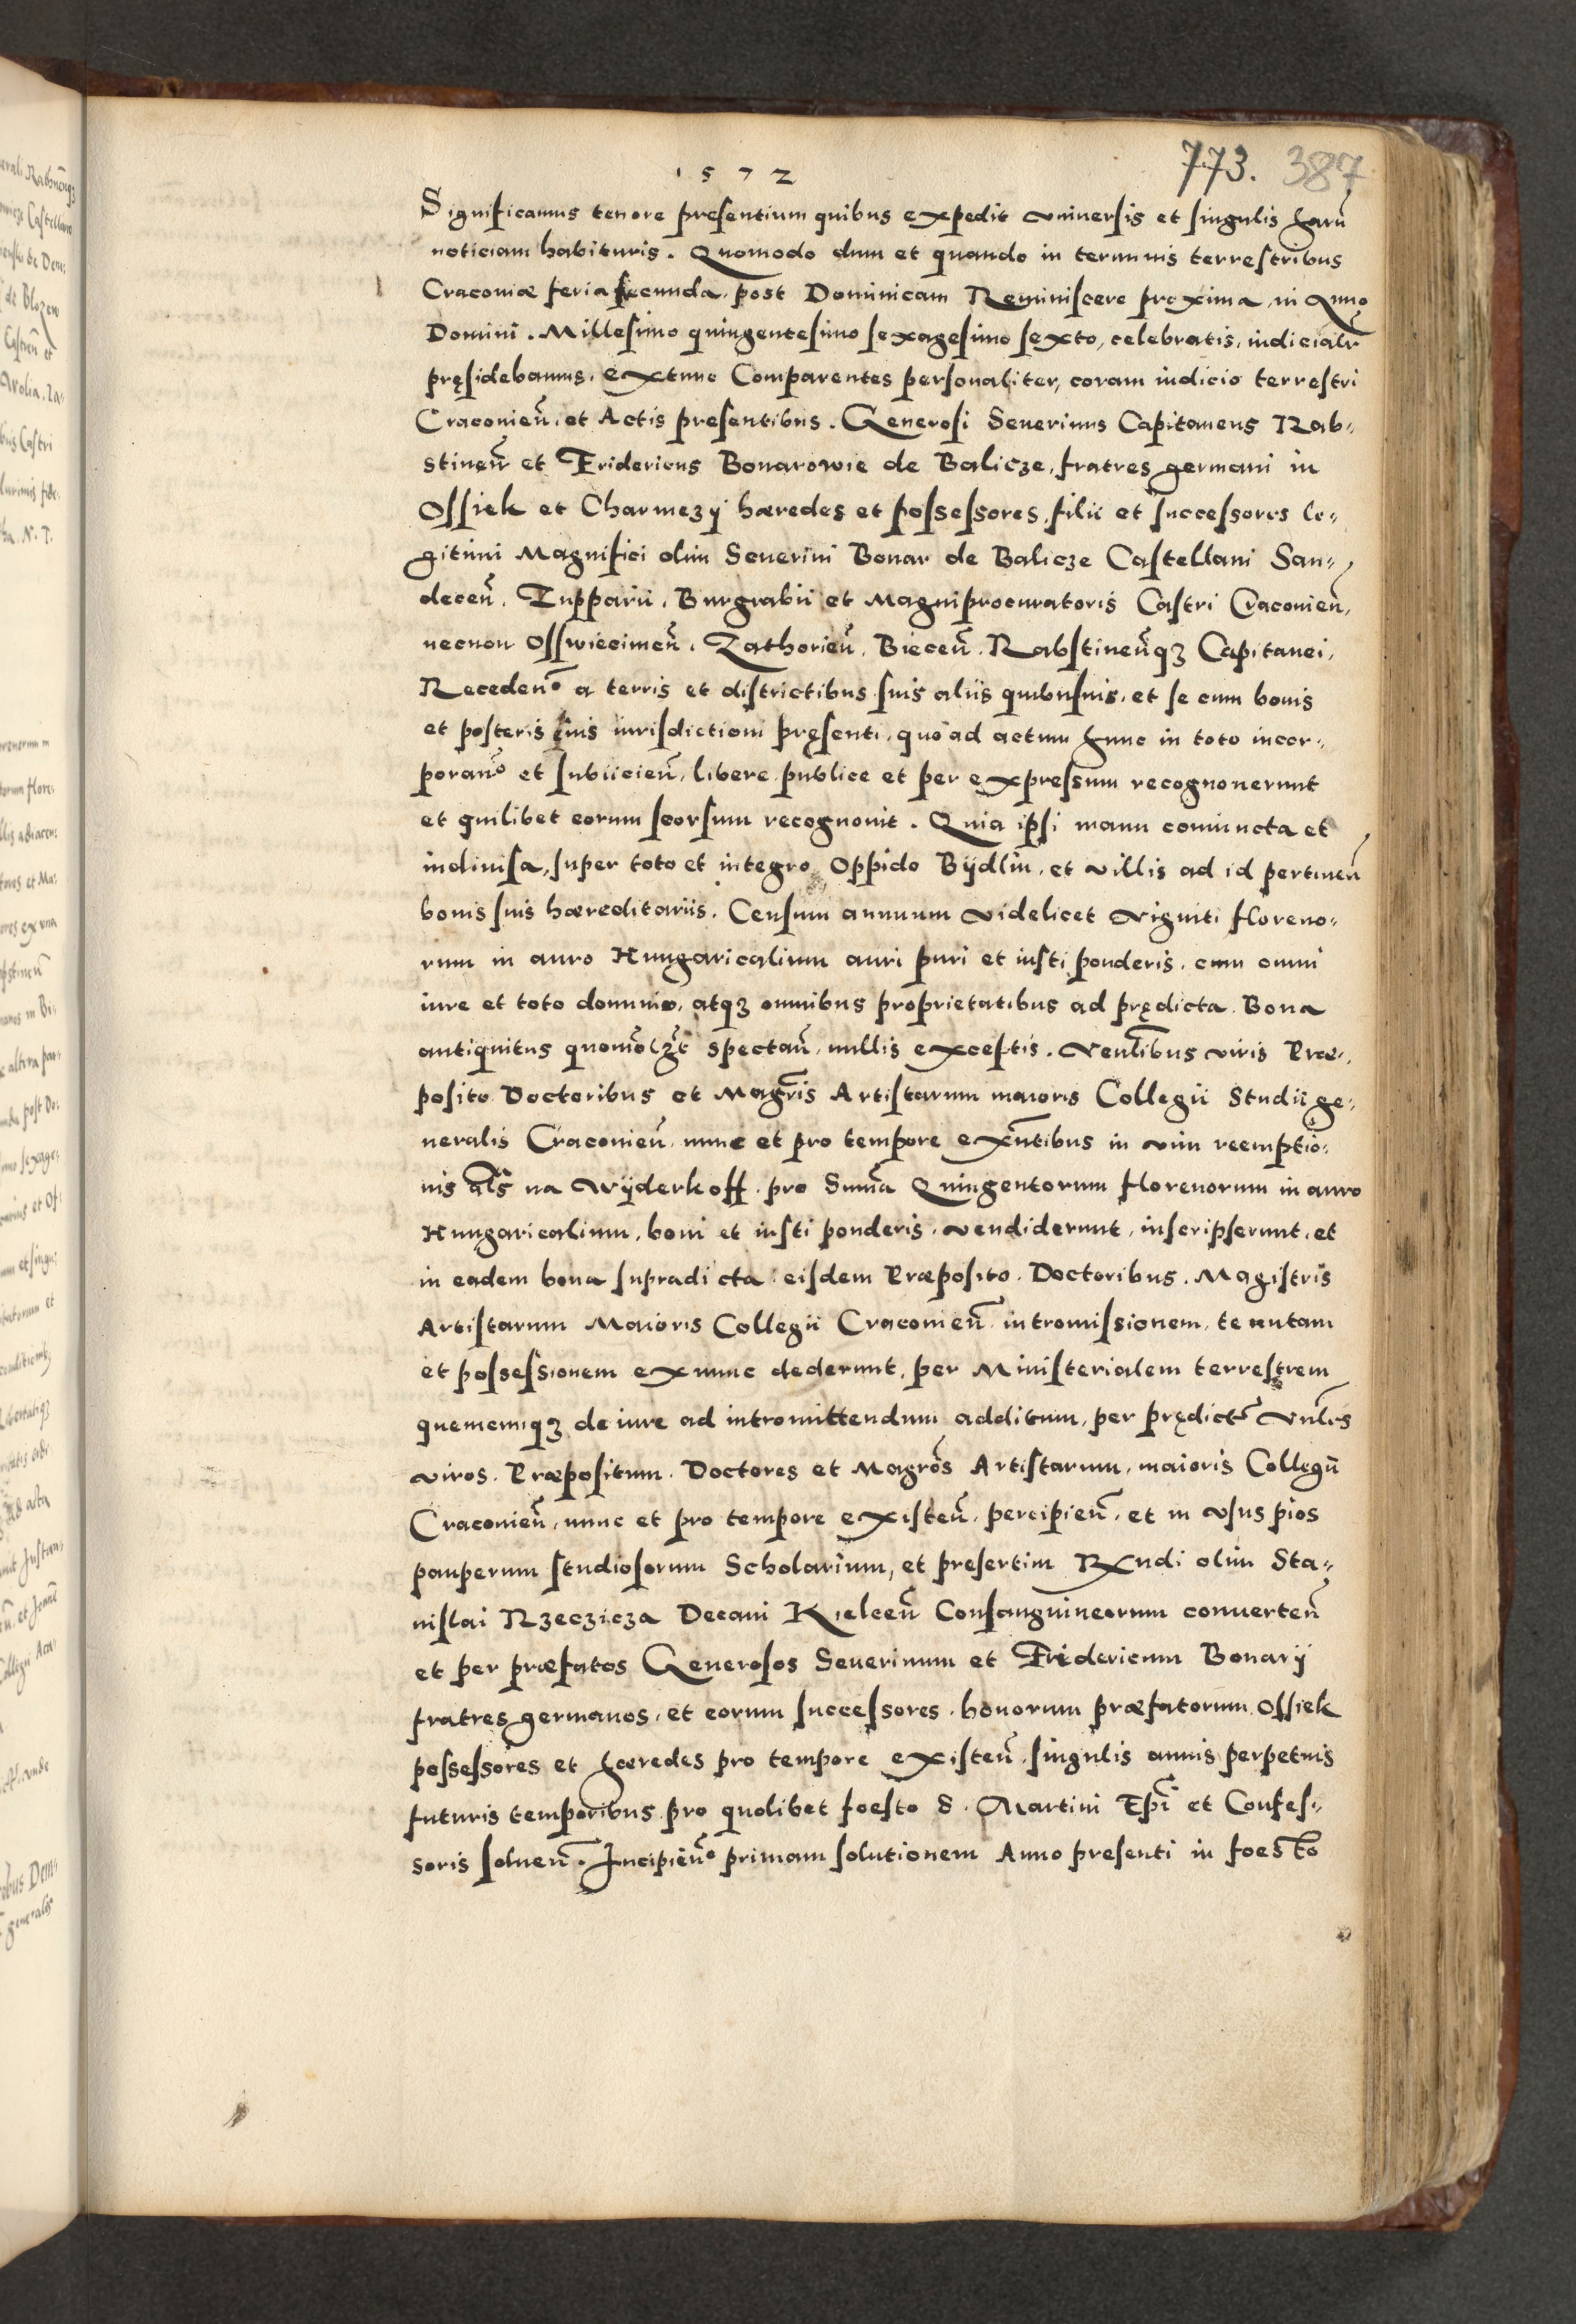 1572
773. 387
Significamus tenore presentium quibus expedit vniuersis et singulis harũ
noticiam habituris. Quomodo dum et quando in terminis terrestribus
Craconiæ feria secunda, post Dominicam Reminiscere proxima, in Anno
Domini. Millesimo quingentesimo sexagesimo sexto, celebratis, iudicialr̃
pręsidebamus, extunc Comparentes personaliter, coram iudicio terrestri
Craconieñ, et Actis presentibus. Generosi Seuerinus Capitaneus Rab-
stineñ et Fridericus Bonarowie de Balicze, fratres germani in
Ossiek et Charmezÿ hæredes et possessores, filii et successores le-
gitimi Magnifici olim Seuerini Bonar de Balicze Castellani San-
deceñ, Zupparii, Burgrabii et Magniprocuratoris Castri Craconieñ,
necnon Osswiecimeñ, Zathorieñ, Bieceñ, Rabstineñqȝ Capitanei,
Recedeñ a terris et districtibus suis aliis quibusuis, et se cum bonis
et posteris suis iurisdictioni pręsenti, quo ad actum hunc in toto incor-
porañ et subiicieñ, libere publice et per expressum recognouerunt
et quilibet eorum seorsum recognouit. Quia ipsi manu coniuncta et
indiuisa, super toto et integro Oppido Bÿdlin, et villis ad id pertineñ
bonis suis hæreditariis. Censum annuum videlicet viginti floreno-
rum in auro Hungaricalium auri puri et iusti ponderis, cum omni
iure et toto dominio, atqȝ omnibus proprietatibus ad prędicta Bona
antiquitus quomõlȝt spectañ, nullis exceptis. Venĩlibus viris Præ-
posito Doctoribus et Magr̃is Artistarum maioris Collegii Studii ge-
neralis Craconieñ, nunc et pro tempore exñtibus in vim reemptio-
nis al̃s na Wÿderkoff, pro Summa Quingentorum florenorum in auro
Hungaricalium, boni et iusti ponderis, vendiderunt, inscripserunt, et
in eadem bona supradicta eisdem Præposito, Doctoribus, Magistris
Artistarum Maioris Collegii Craconieñ intromissionem, tenutam
et possessionem exnunc dederunt, per Ministerialem terrestrem
quemcunqȝ de iure ad intromittendum additum, per prędictos Vnĩles
viros, Præpositum, Doctores et Magr̃os Artistarum, maioris Collegii
Craconieñ, nunc et pro tempore existeñ, percipieñ, et in vsus pios
pauperum studiosorum Scholarium, et presertim Rxndi olim Sta-
nislai Rzeczicza Decani Kielceñ Consanguineorum conuerteñ
et per præfatos Generosos Seuerinum et Fridericum Bonarÿ
fratres germanos, et eorum successores, bonorum præfatorum Ossiek
possessores et hæredes pro tempore existeñ, singulis annis perpetuis
futuris temporibus pro quolibet foesto S. Martini Epĩ et Confes-
soris solueñ. Incipieñ primam solutionem Anno presenti in foesto